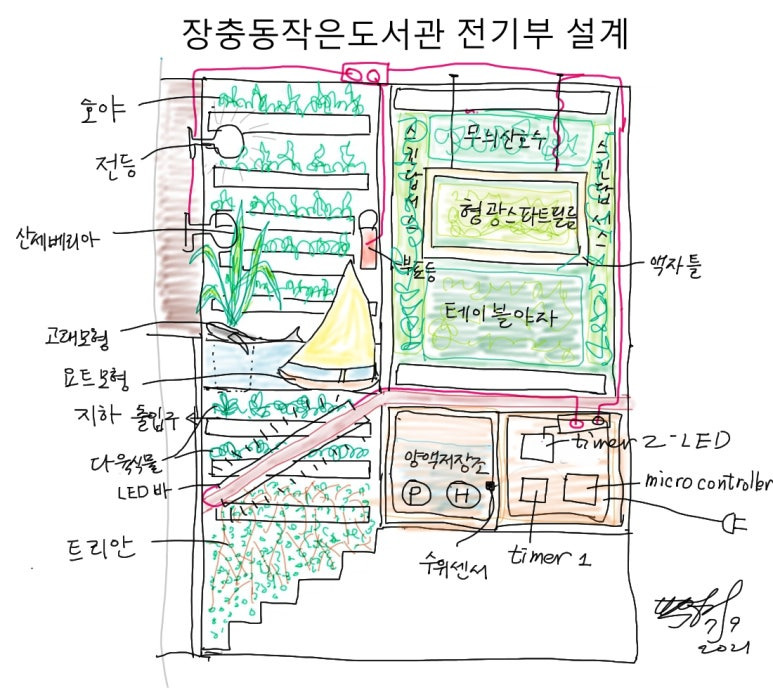 장충동작은도서관 전기부 설계
호야
전등
산세베리아
고래모형
요트모형
지하 출입구
다육식물
LED바
트리안
스킨답서스
무늬산호수
스킨답서스
형광스파트필름
부표등
액자틀
테이블야자
양액저장소
P H
timer 2-LED
micro controller
수위센서
timer 1
7/9
2021